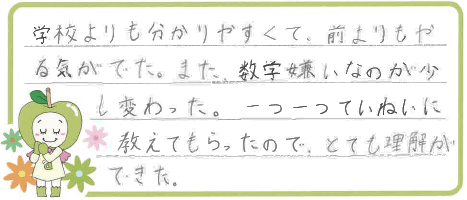 学校よりも分かりやすくて、前よりもや
る気がでた。また、数学嫌いなのが少
し変わった。一つ一つていねいに
教えてもらったので、とても理解が
できた。